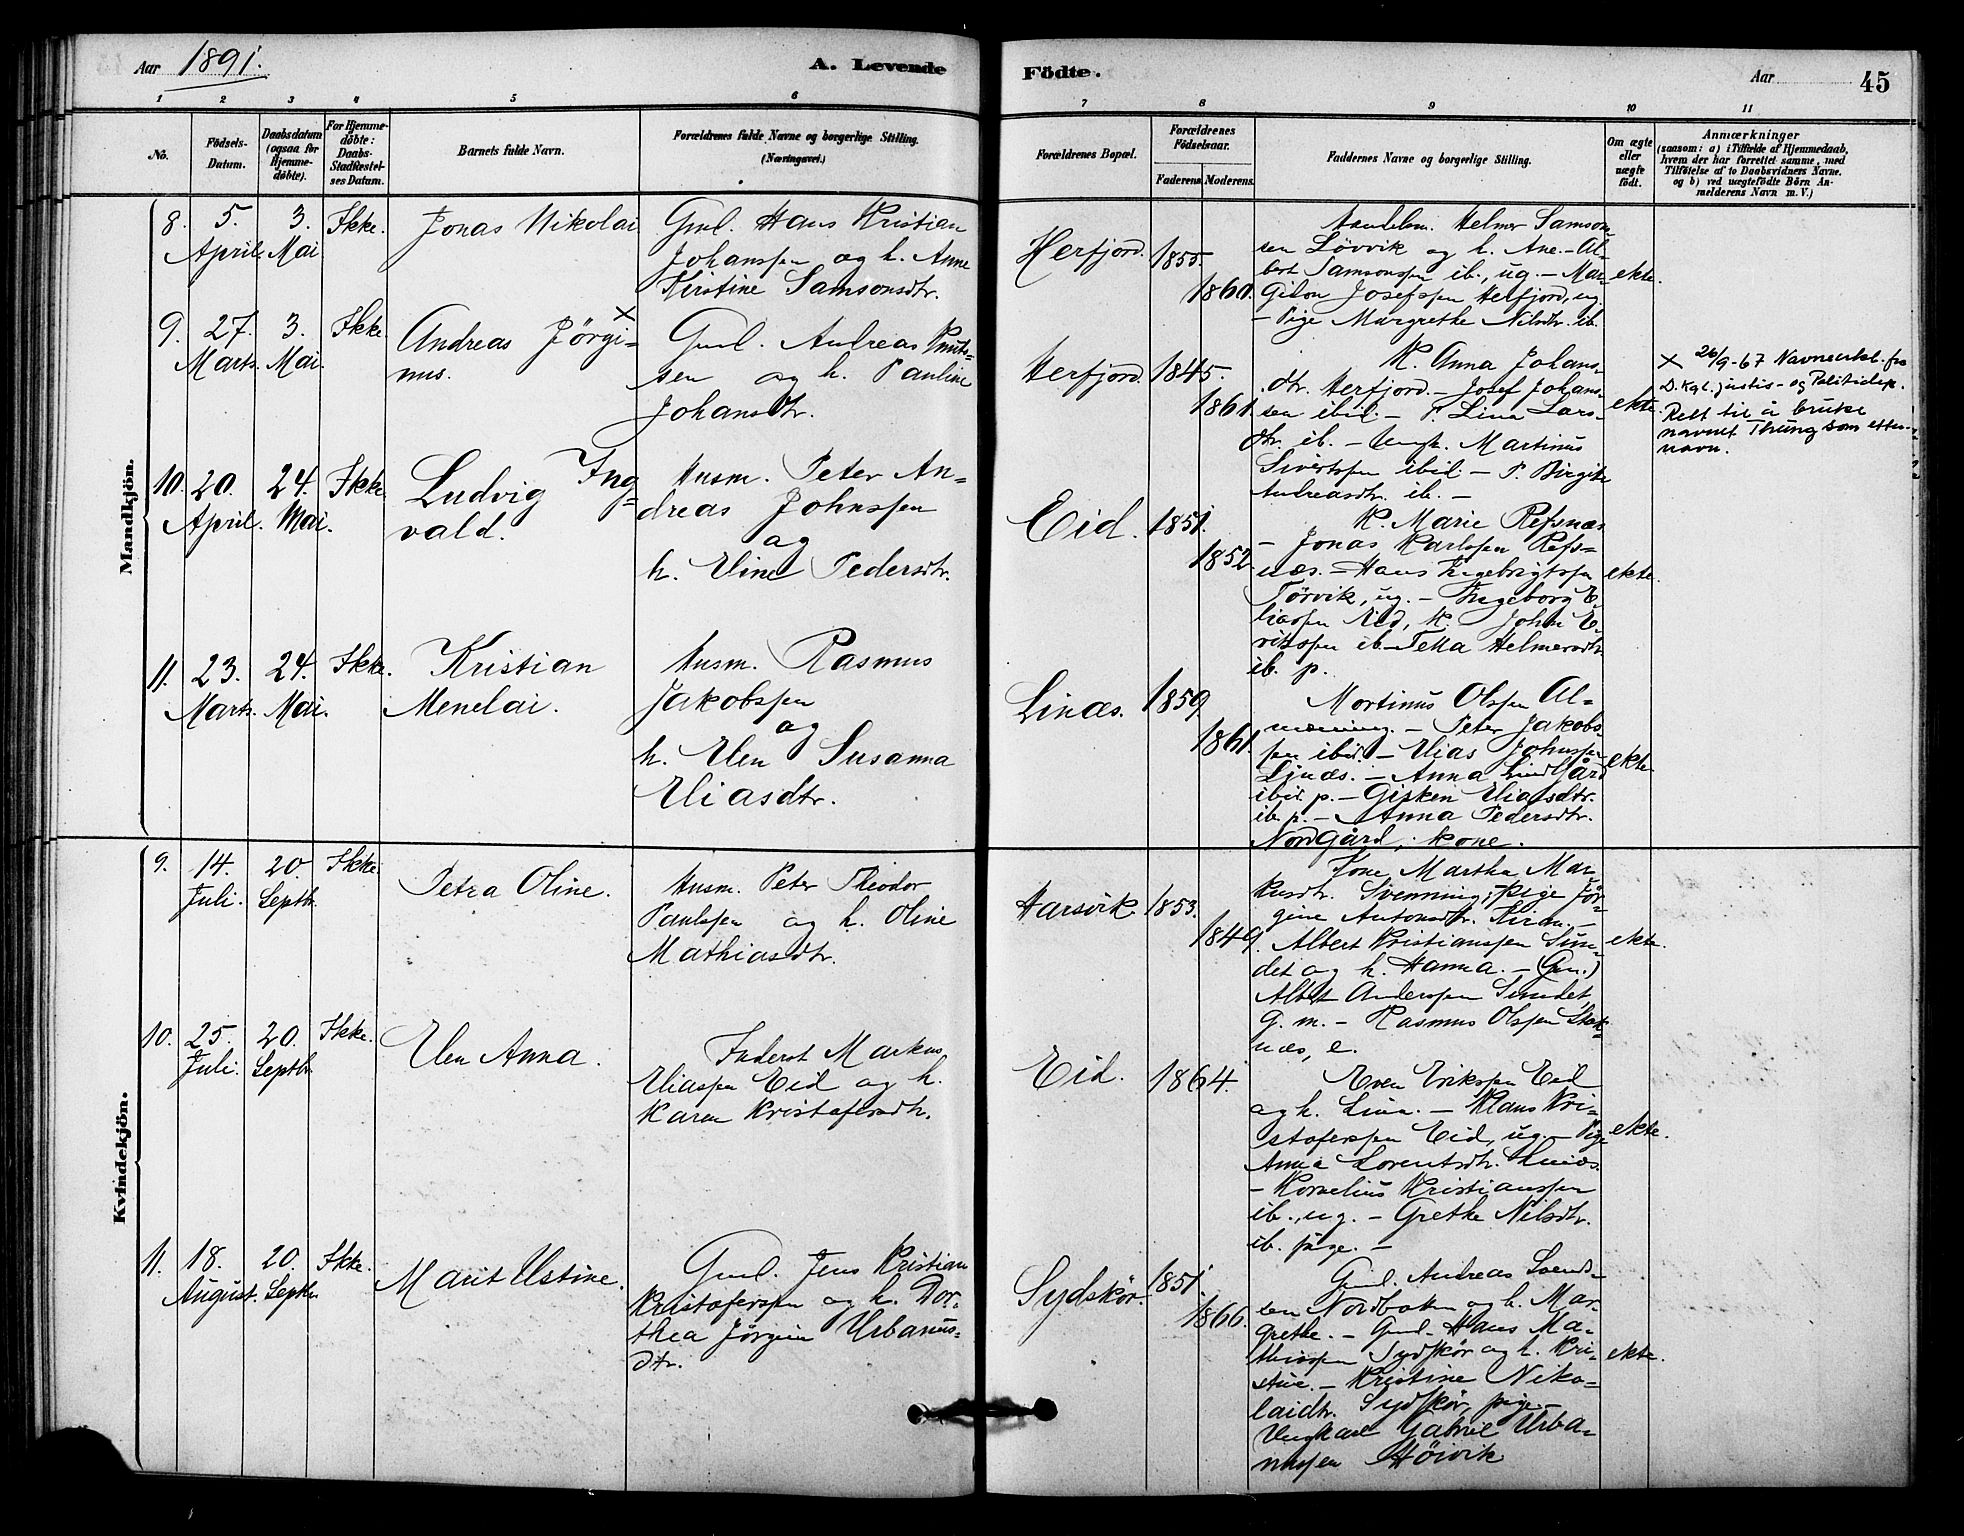 Aar 1891.
A. Levende
Födte.
Aar
45
1 2 3 4 5 6 7 8 9 10 11
No.
Födsels-
Datum.
Daabsdatum
(ogsaa for
Hjemme-
döbte).
For Hjemme-
döbte:
Daabs-
Stadfæstel-
ses Datum.
Barnets fulde Navn.
Forældrenes fulde Navne og borgerlige Stilling.
(Næringsvei.)
Forældrenes Bopæl.
Forældrenes
Födselsaar.
Faderens. Moderens.
Faddernes Navne og borgerlige Stilling.
Om ægte
eller
uægte
födt.
Anmærkninger
(saasom: a) i Tilfælde af Hjemmedaab,
hvem der har forrettet samme, med
Tilföielse af to Daabsvidners Navne,
og b) ved uægtefödte Börn An-
melderens Navn m. V.)
Mandkjön.
8. 5. April. 3. Mai Ikke.
Jonas Nikolai
Gml. Hans Kristian
Johanssen og h. Anne
Kirstine Samsonsdtr.
Herfjord. 1855.
1860.
Helmer Samson-
sen Lövvik og h. Ane - Al-
bert Samsonssen ib., ug. - Mar-
Gilon Josefssen Herfjord, ug.
- Pige Margrethe Nilsdtr. ib.
ekte.
9. 27. Marts. 3. Mai. Ikke.
Andreas Jörgi- x
nus.
Gml. Andreas Knuts-
sen og h. Pauline
Johansdtr.
Herfjord. 1845.
1861.
K. Anna Johans-
dtr. Herfjord. - Josef Johans-
sen ibid. - P. Lina Lars-
dtr. ib. - Ungk. Martinus
Sivertssen ibid. - P. Birgite
Andreasdtr. ib. -
ekte.
x 26/9-67 Navneerkl. fra
D. Kgl. justis- og Politidep.
Rett til å bruke
navnet Thung som etter-
navn.
10. 20. April. 24. Mai. Ikke.
Ludvig Ing-
vald.
Husm. Peter An-
dreas Johnssen
og
h. Eline Pedersdtr.
Eid. 1851.
1852.
K. Marie Refsnæs
- Jonas Karlssen Refs-
næs. - Hans Ingebrigtssen
Törvik, ug. - Ingeborg E-
liassen Eid, K. John E-
rikssen ib. - Tella Helmersdtr.
ib. p.
ekte.
11. 23. Marts. 24. Mai. Ikke.
Kristian
Menelai.
Husm. Rasmus
Jakobssen
og
h. Elen Susanna
Eliasdtr.
Linæs. 1859.
1861.
Mortinus Olssen Al-
menning. - Peter Jakobs-
sen ibid. - Elias Johnssen
Linæs. - Anna Lindgård
ibid. p. - Gisken Eliasdtr.
ib. p. - Anna Pedersdtr.
Nordgård, kone.
ekte.
Kvindekjön.
9. 14. Juli. 20. Septbr. Ikke.
Petra Oline.
Husm. Peter Theodor
Paulssen og h. Oline
Mathiasdtr.
Harsvik. 1853.
1849.
Kone Martha Mar-
kusdtr. Svenning; pige Jör-
gine Antonsdtr. Kiran. -
Albert Kristianssen Sun-
det og h. Hanna. - (Gm.)
Albert Anderssen Sundet,
g. m. - Rasmus Olssen Stok-
næs, e.
ekte.
10. 25. Juli. 20. Septbr. Ikke.
Elen Anna.
Inderst Markus
Eliassen Eid og h.
Karen Kristofersdtr.
Eid. 1864.
Even Erikssen Eid
og h. Lina. - Klaus Kri-
stoferssen Eid, ug. - Pige
Anna Lorentsdtr. Linæs.
- Kornelius Kristianssen
ib., ug. - Grethe Nilsdtr.
ib. pige. -
ekte.
11. 18. August. 20. Septbr. Ikke.
Marit Ustine.
Gml. Jens Kristian
Kristoferssen og h. Dor-
thea Jörgine Urbanus-
dtr.
Sydskör. 1851.
1866.
Gml. Andreas Svend-
sen Nordbaken og h. Mar-
grethe. - Gml. Hans Ma-
thiassen Sydskör og h. Kri-
stine. - Kristine Niko-
laidtr. Sydskör, pige. -
Ungkarl Gabriel Urba-
nussen Höivik
ekte.